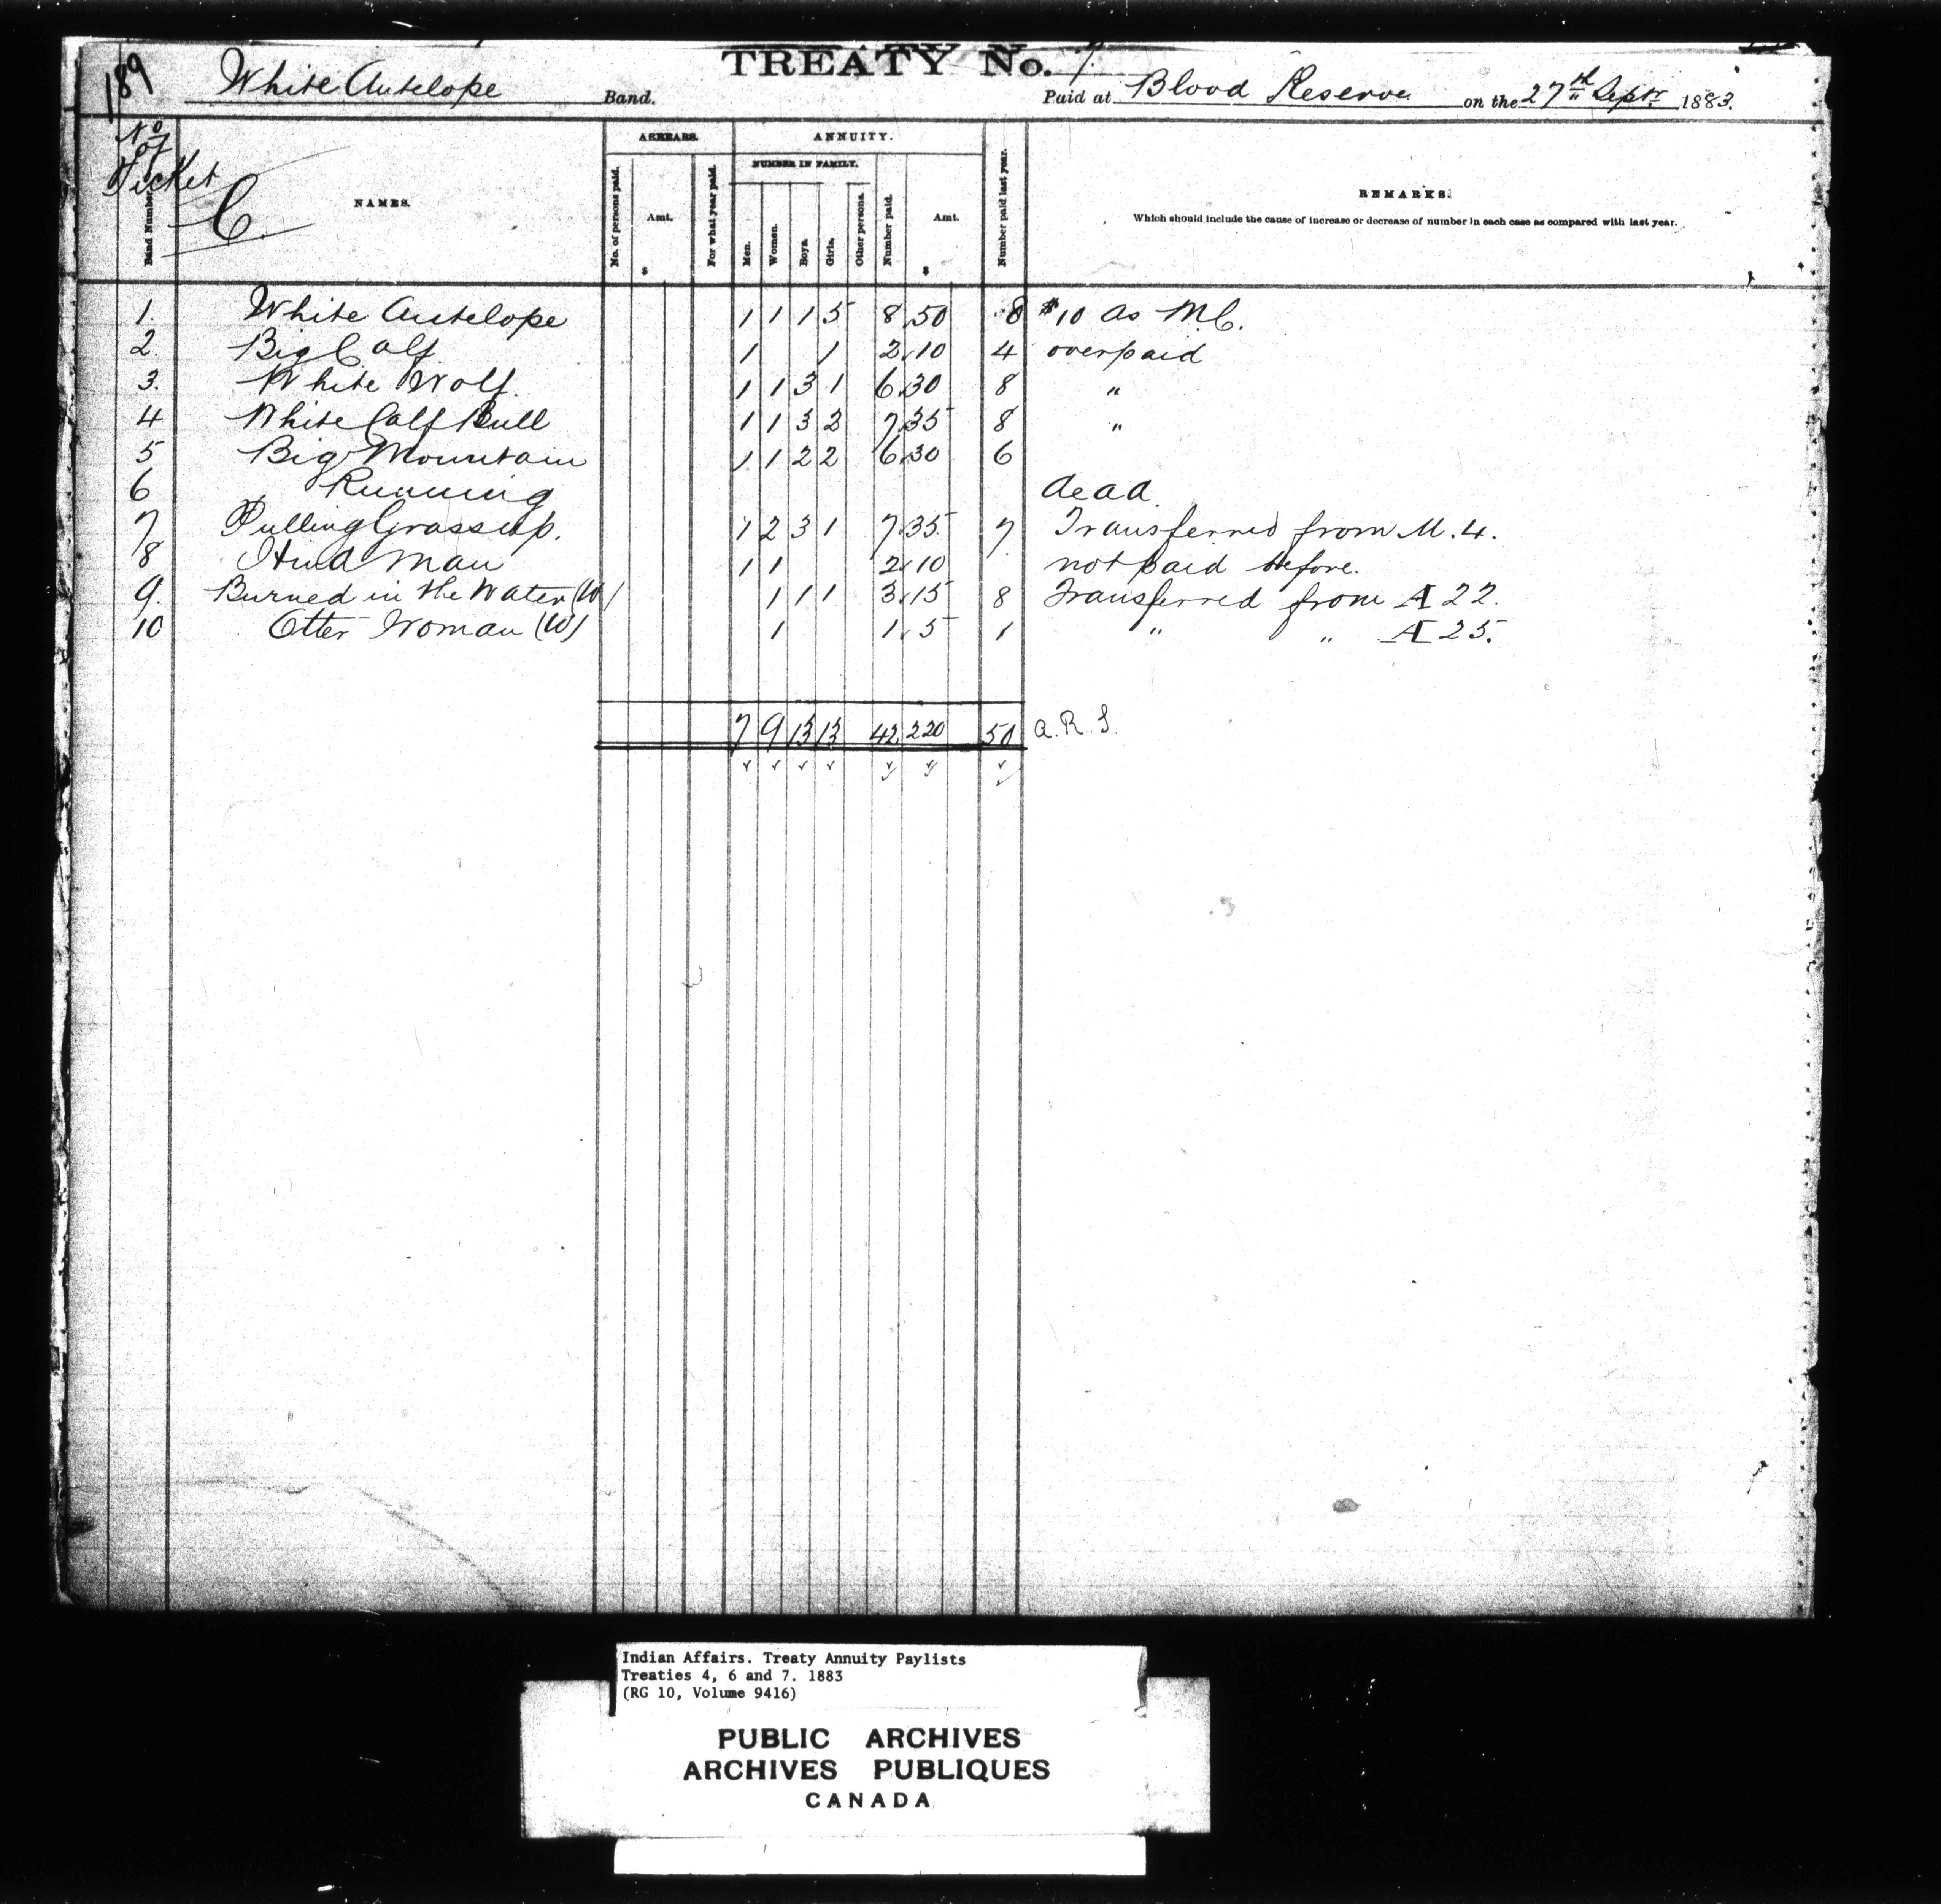 189
TREATY No. 7.
White Antelope Band. Paid at Blood Reserve on the 27th Septr 1883.
No of Ticket
C.
Band Number. NAMES. ARREARS. No. of persons paid. Amt. $ For what year paid. ANNUITY. NUMBER IN FAMILY. Men. Women. Boys. Girls. Other persons. Number paid. Amt. $ Number paid last year. REMARKS.
Which should include the cause of increase or decrease of number in each case as compared with last year.
1. White Antelope 1 1 1 5 8 50 8 $10 as M.C.
2. Big Calf 1 1 2 10 4 overpaid
3. White Wolf 1 1 3 1 6 30 8 "
4 White Calf Bull 1 1 3 2 7 35 8 "
5 Big Mountain 1 1 2 2 6 30 6
6 Running dead.
7 Pulling Grass up. 1 2 3 1 7 35 7 Transferred from M. 4.
8 Hind Man 1 1 2 10 not paid before.
9. Burned in the Water (W) 1 1 1 3 15 8 Transferred from A 22.
10 Otter Woman (W) 1 1 5 1 " " A 25.
7 9 13 13 42 220 50 A.R.S.
Indian Affairs. Treaty Annuity Paylists
Treaties 4, 6 and 7. 1883
(RG 10, Volume 9416)
PUBLIC ARCHIVES
ARCHIVES PUBLIQUES
CANADA